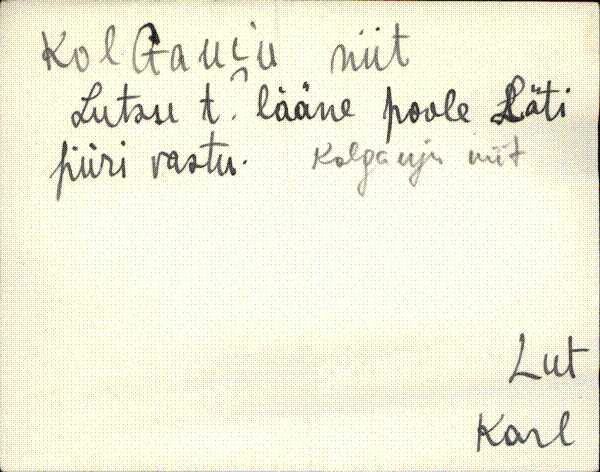 KolGauju niit
Lutsu t. lääne poole Läti
piiri vastu. Kolgauju niit
Lut
Karl